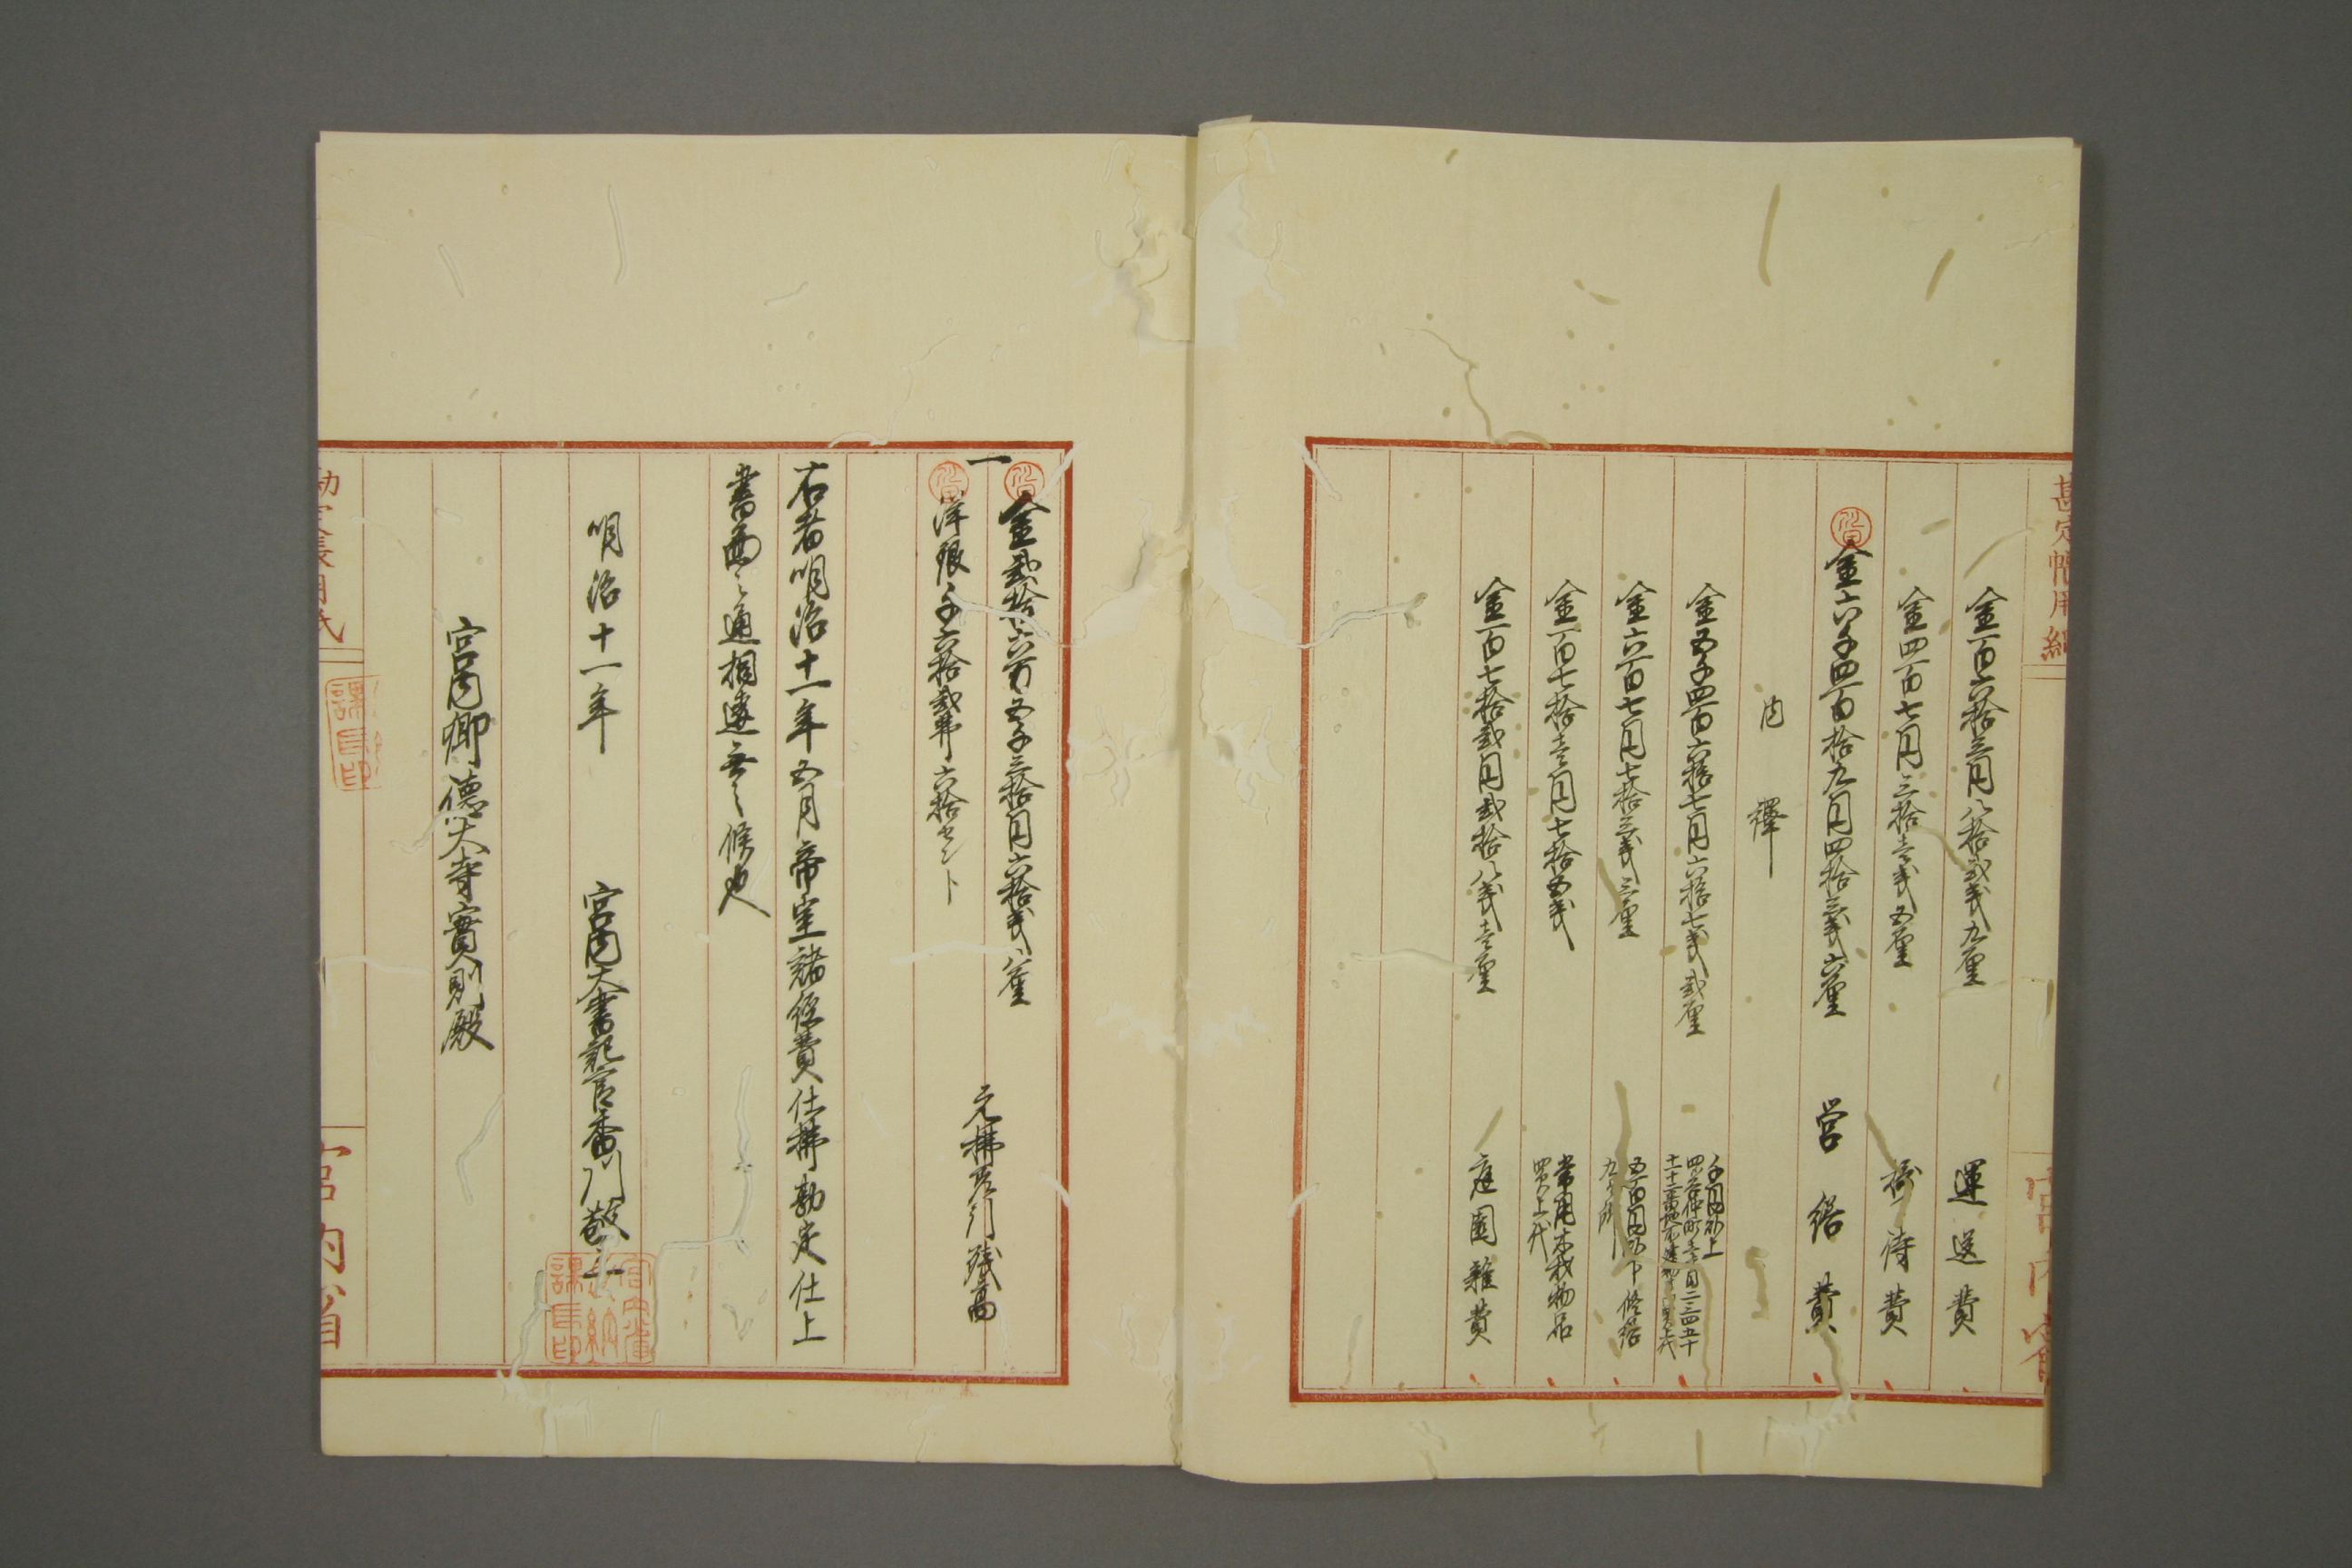 勘定帳用紙
宮内省
金百六拾三円八拾弐銭九厘 運送費
金四百七円三拾壱銭五厘 接待費
金六千四百拾九円四拾三銭六厘 営繕費
内訳
金五千四百六拾七円六拾七銭弐厘
金六百七円七拾三銭三厘 五百円以下修繕
金百七拾壱円七拾五銭 常用木材物品
買上代
金百七拾弐円弐拾八銭壱厘 庭園雑費
一
金弐拾六万五千三拾円六拾銭八厘
洋銀千六拾弐弗六拾セント
元払差引残高
右者明治十一年五月帝室諸経費仕払勘定仕上
書面之通相違無之候也
明治十一年 宮内大書記官香川敬三
宮内省出納課長印
宮内卿徳大寺實則殿
勘定帳用紙
課長印
宮内省